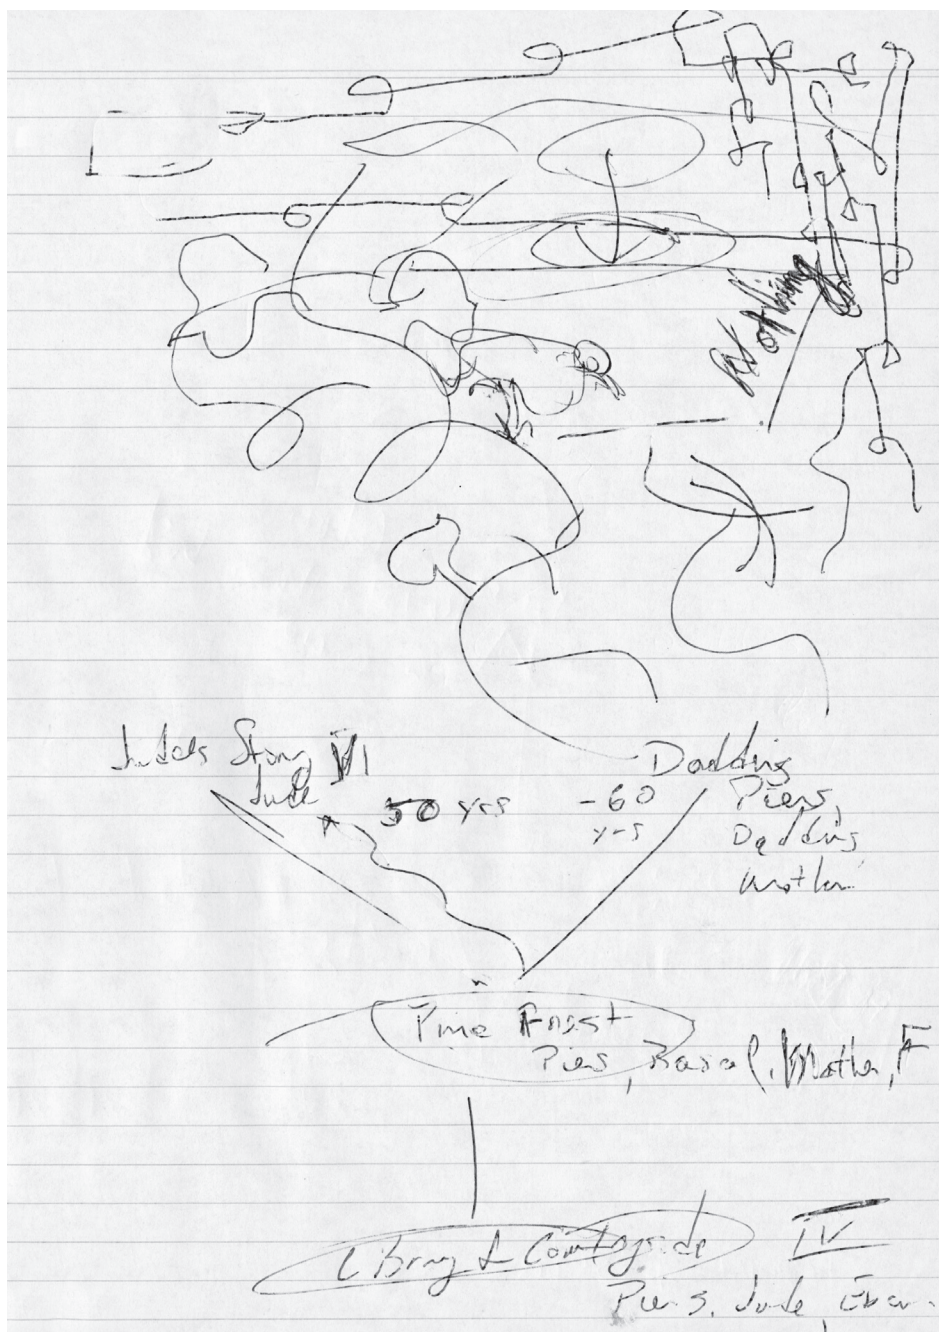 Nothing
Jude's Story VI
Jude
50 yrs
-60
yrs
Dadding
Piers,
Dadding
Mother
Pine Forest
Piers, Basal, Mother, F
Library & Countryside
IV
Piers, Jude, Eban